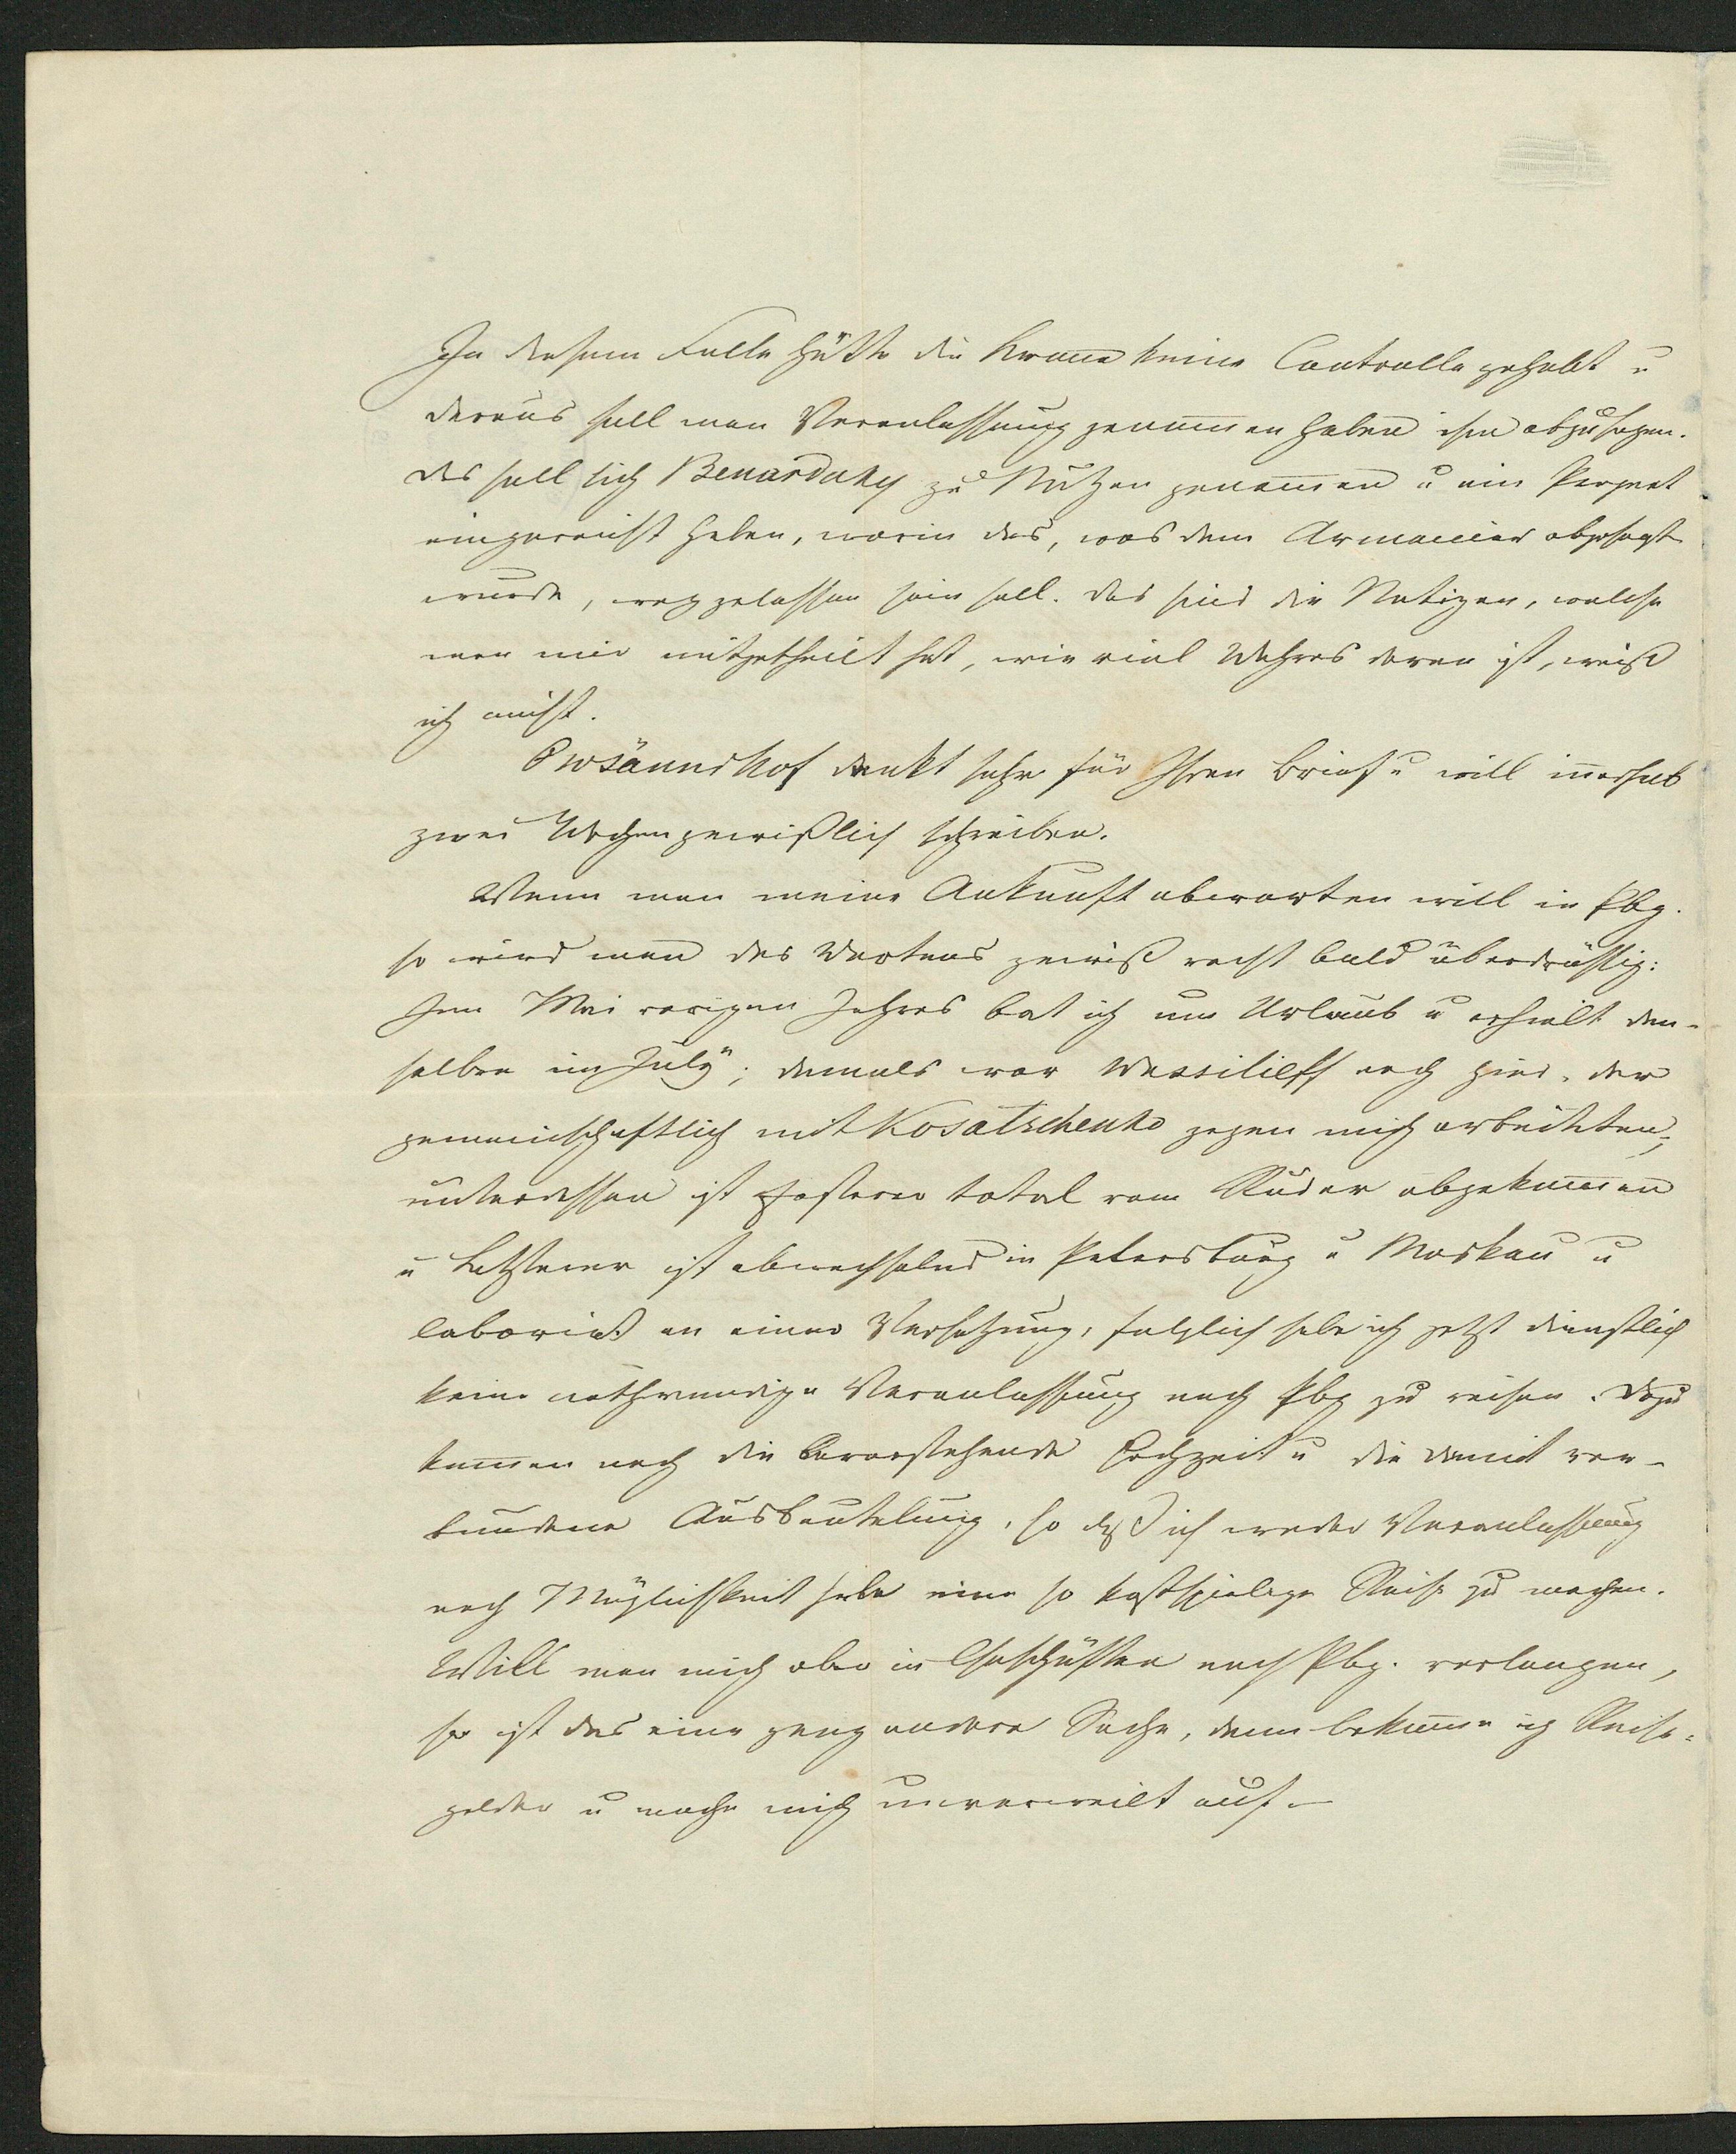 In diesem Falle hätte die Krone keine Controlle gehabt u
daraus soll man Veranlassung genommen haben ihm abzusagen.
Das soll sich Benardaky zu Nutzen genommen u ein Project
eingereicht haben, worin das, was dem Armenier abgesagt
wurde, weggelassen sein soll. Das sind die Notizen, welche
man mir mitgetheilt hat, wie viel Wahres daran ist, weiß
ich nicht.
Owsännikof dankt sehr für Ihren Brief u will innerhalb
zwei Wochen gewißlich schreiben.
Wenn man meine Ankunft abwarten will in Pbg.
so wird man des Wartens gewiß recht bald überdrüssig:
Im Mai vorigen Jahres bat ich um Urlaub u erhielt den-
selben im July; damals war Wassilieff noch hier, der
gemeinschaftlich mit Kosatschenko gegen mich arbeiteten;
unterdessen ist Ersterer total vom Ruder abgekommen
u Letzterer ist abwechselnd in Petersburg u Moskau u
laborirt an einer Versetzung, folglich habe ich jetzt dienstlich
keine nothwendige Veranlassung nach Pbg zu reisen. Dazu
kommen noch die bevorstehende Hochzeit u die damit ver-
bundene Ausbeutelung, so daß ich weder Veranlassung
noch Möglichkeit habe eine so kostspielige Reise zu machen.
Will man mich aber in Geschäften nach Pbg. verlangen,
so ist das eine ganz andere Sache, dann bekomme ich Reise-
gelder u mache mich unverweilt auf.